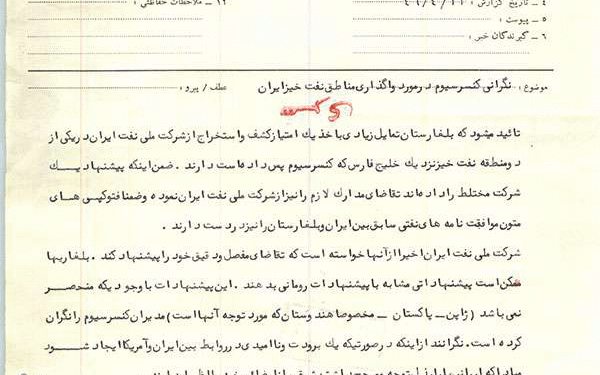 ٤ ـ تاریخ گزارش :
۵ ـ پیوست :
٦ ـ گیرندگان خبر :
١٢ ـ ملاحظات حفاظتی :
موضوع : نگرانی کنسرسیوم در مورد واگذاری مناطق نفت خیز ایران عطف / پیرو :
تائید میشود که بلغارستان تمایل زیادی باخذ یك امتیاز کشف و استخراج از شرکت ملی نفت ایران در یکی از
دو منطقه نفت خیز نزدیك خلیج فارس که کنسرسیوم پس داده است دارند . ضمن اینکه پیشنهاد یك
شرکت مختلط را داده اند تقاضای مدارك لازم را نیز از شرکت ملی نفت ایران نموده و ضمنا فتوکپی های
متون موافقت نامه های نفتی سابق بین ایران و بلغارستان را نیز در دست دارند .
شرکت ملی نفت ایران اخیرا از آنها خواسته است که تقاضای مفصل و دقیق خود را پیشنهاد کند . بلغاریها
ممکن است پیشنهاداتی مشابه با پیشنهادات رومانی بدهند . این پیشنهادات با وجودیکه منحصر
نمی باشد ( ژاپن ـ پاکستان ـ مخصوصا هندوستان که مورد توجه آنها است ) مدیران کنسرسیوم را نگران
کرده است . نگرانند از اینکه در صورتیکه یك برودت و ناامیدی در روابط بین ایران و آمریکا ایجاد شود
مبادا که ایران